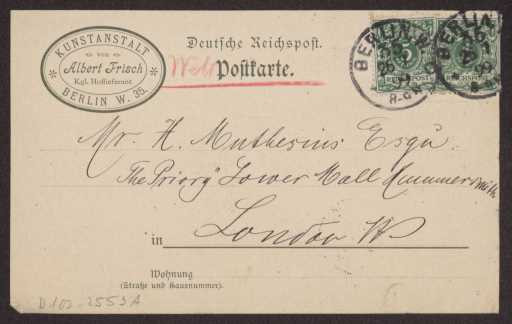 KUNSTANSTALT
von
Albert Frisch
Kgl. Hoflieferant
BERLIN W. 35.
Deutsche Reichspost.
Postkarte.
BERLIN, W.
8-9 N
5
REICHSPOST
BERLIN
REICHSPOST
Mr. H. Muthesius Esqu.
The Priory Lower Mall Hammersmith
in London W
Wohnung
(Straße und Hausnummer).
D.102-2553A